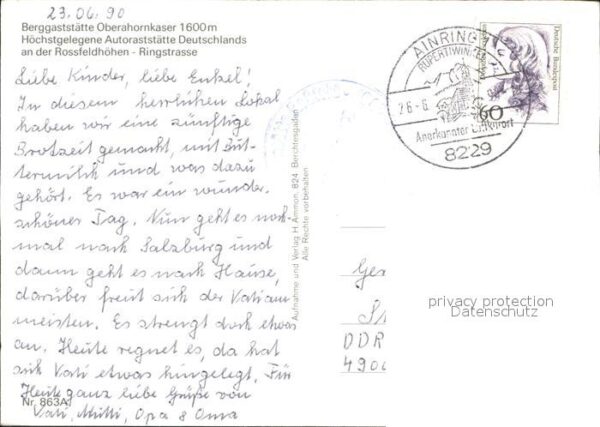 23.06.90
Berggaststätte Oberahornkaser 1600 m
Höchstgelegene Autoraststätte Deutschlands
an der Rossfeldhöhen - Ringstrasse
Liebe Kinder, liebe Enkel!
In diesem herrlichen Lokal
haben wir eine zünftige
Brotzeit gemacht, mit But-
termilch und was dazu
gehört. Es war ein wunder-
schönes Tag. Nun geht es noch-
mal nach Salzburg und
dann geht es nach Hause,
darüber freut sich der Vati am
meisten. Es strengt doch etwas
an. Heute regnet es, da hat
sich Vati etwas hingelegt. Für
Heute ganz liebe Grüße von
Vati, Mutti, Opa & Oma
Nr. 863A
Aufnahme und Verlag H. Ammon, 824 Berchtesgaden
Alle Rechte vorbehalten
AINRING
RUPERTIWIN
26.-6.
Anerkannter Luftkurort
8229
Deutsche Bundespost
60
Ger
St
DDR
490
privacy protection
Datenschutz